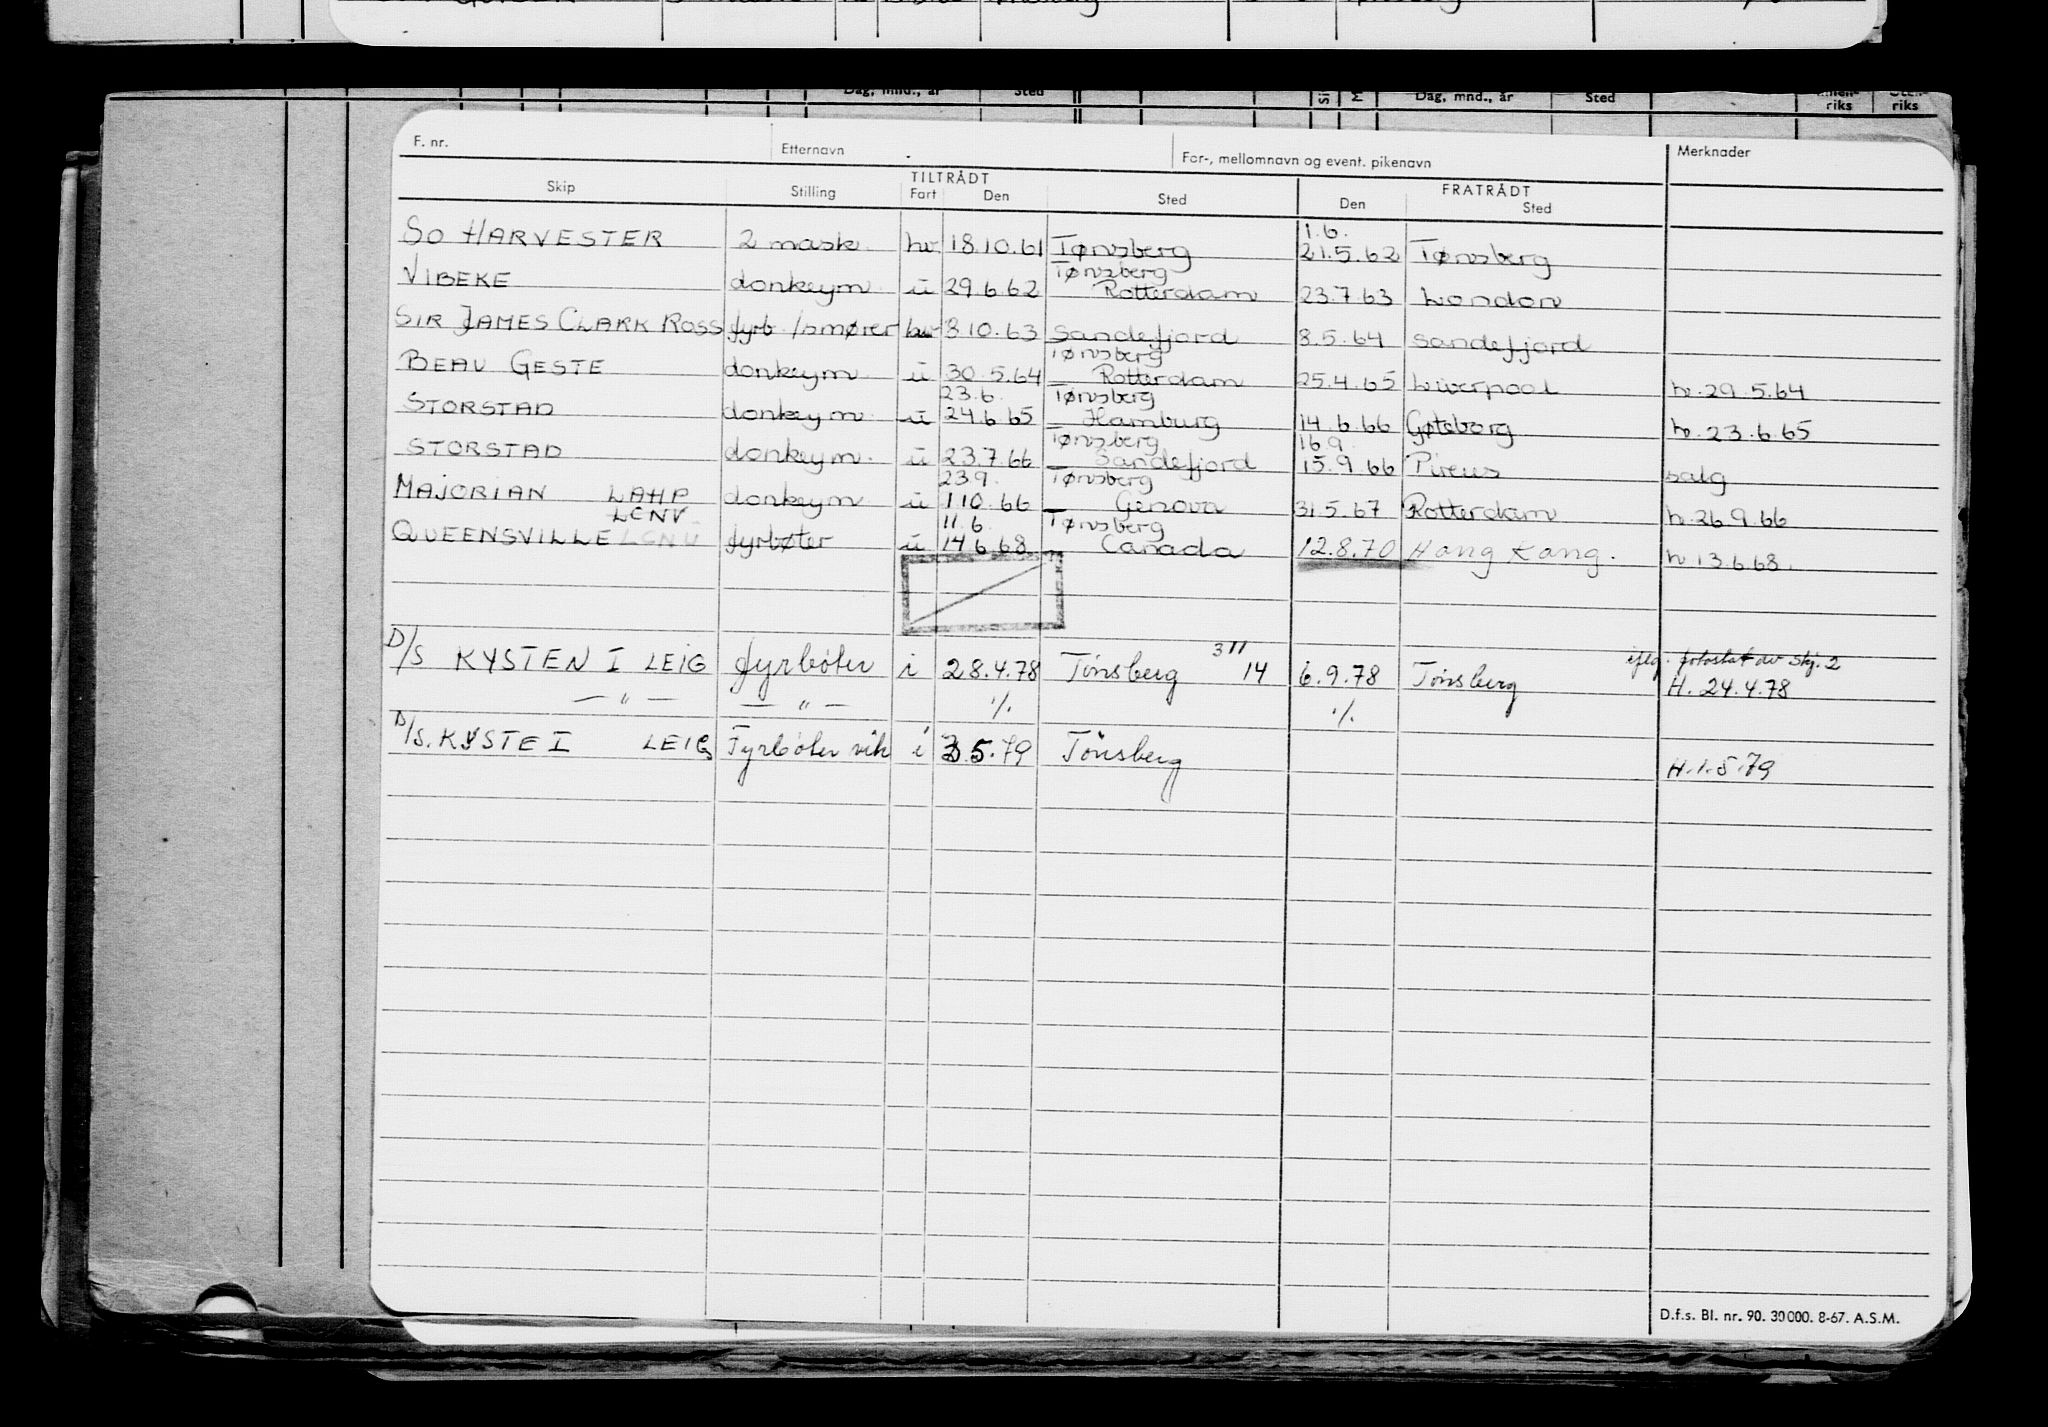 Dag, mnd., år Sted Dag, mnd., år Sted riks riks
F. nr. Etternavn For-, mellomnavn og event. pikenavn Merknader
TILTRÅDT FRATRÅDT
Skip Stilling Fart Den Sted Den Sted
1.6.
SO HARVESTER 2 mask. hv 18.10.61 Tønsberg 21.5.62 Tønsberg
Tønsberg
VIBEKE donkeym u 29.6.62 Rotterdam 23.7.63 London
SIR JAMES CLARK ROSS fyrb/smører hv 3.10.63 Sandefjord 8.5.64 Sandefjord
Tønsberg
BEAU GESTE donkeym u 30.5.64 Rotterdam 25.4.65 Liverpool h.29.5.64
23.6. Tønsberg
STORSTAD donkeym u 24.6.65 Hamburg 14.6.66 Gøteborg h.23.6.65
Tønsberg 16.9.
STORSTAD donkeym. u 23.7.66 Sandefjord 15.9.66 Pireus salg
23.9. Tønsberg
MAJORIAN LAHP donkeym u 1.10.66 Genova 31.5.67 Rotterdam h.26.9.66
LCNV 11.6. Tønsberg
QUEENSVILLE LCNU fyrbøter u 14.6.68 Canada 12.8.70 Hong Kong. h 13.6.68.
3 11 iflg. fotostat av skj. 2
D/S KYSTEN I LEIG fyrbøter i 28.4.78 Tønsberg 14 6.9.78 Tønsberg H. 24.4.78
— " — — " — ./. ./.
D/S. KYSTE I LEIG Fyrbøter vik i 3.5.79 Tönsberg H.1.5.79
D.f.s. Bl. nr. 90. 30000. 8-67. A.S.M.